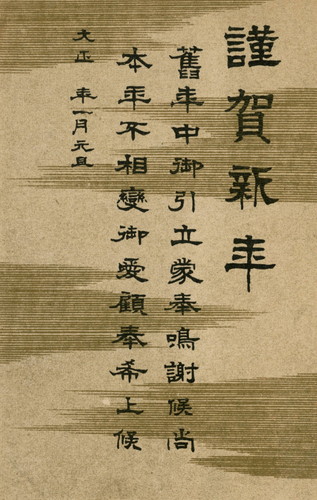 謹賀新年
舊年中御引立蒙奉鳴謝候尚
本年不相變御愛顧奉希上候
大正 年一月元旦